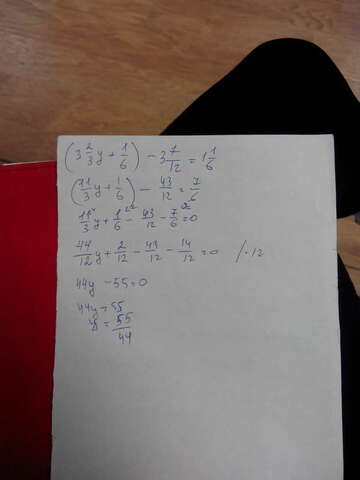 (3 2/3 y + 1/6) - 3 7/12 = 1 1/6
(11/3 y + 1/6) - 43/12 = 7/6
11/3 y + 1/6 - 43/12 - 7/6 = 0
44/12 y + 2/12 - 43/12 - 14/12 = 0 /·12
44y - 55 = 0
44y = 55
y = 55/44